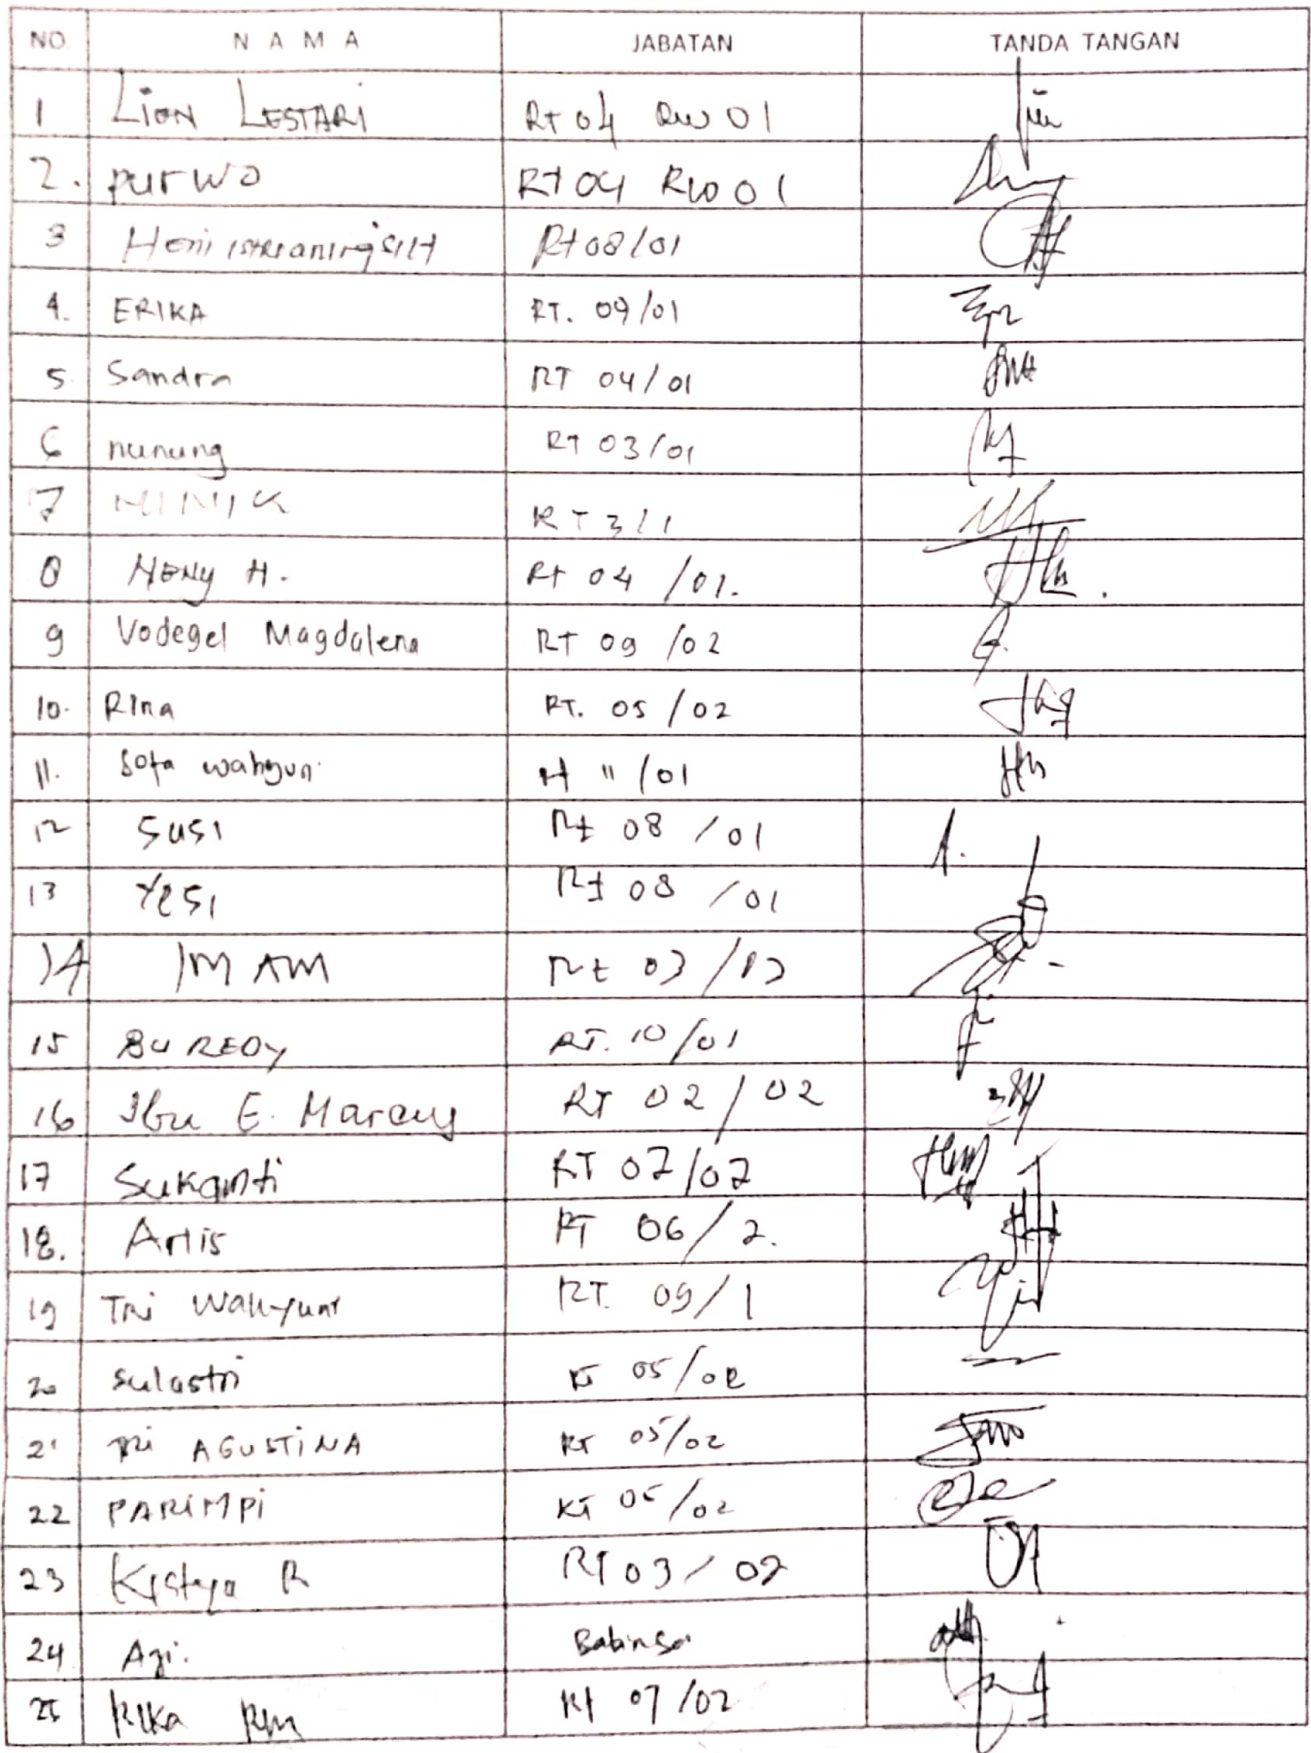 NO. N A M A JABATAN TANDA TANGAN
1 LiON LESTARI Rt 04 RW 01
2. purwo Rt 04 RW 01
3 Heni Rt 08/01
4. ERIKA RT. 09/01
5. Sandra RT 04/01
6 nunung RT 03/01
7 NINIK RT 3/1
8 HENY H. Rt 04 /01.
9 Vodegel Magdalena RT 09 /02
10. Rina RT. 05 /02
11. wahyuni " /01
12 SUSI Rt 08 /01
13 YESI Rt 08 /01
14 IMAM Rt 03
15 BU REDY RT. 10/01
16 Ibu E. Marcus RT 02 / 02
17 Sukamti RT 02/02
18. Artis RT 06/2.
19 Tri Wahyuni RT. 09/1
20 sulastri RT 05/02
21 Tri AGUSTiNA RT 05/02
22 PARiMPi RT 05/02
23 R RT 03/02
24 Babinsa
25 Rika RT 07/02